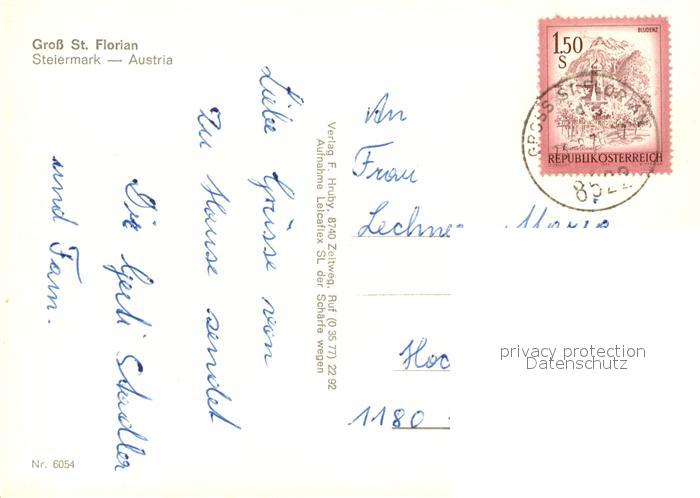 Groß St. Florian
Steiermark — Austria
Liebe Grüsse von
zu Hause sendet
Dir Gerti Stadler
und Fam.
Nr. 6054
Verlag F. Hruby, 8740 Zeltweg, Ruf (0 35 77) 22 92
Aufnahme Leicaflex SL der Schärfe wegen
BLUDENZ
1.50
S
REPUBLIK ÖSTERREICH
GROSS ST. FLORIAN
8522
An
Frau
Lechner Maria
Hoc
1180
privacy protection
Datenschutz